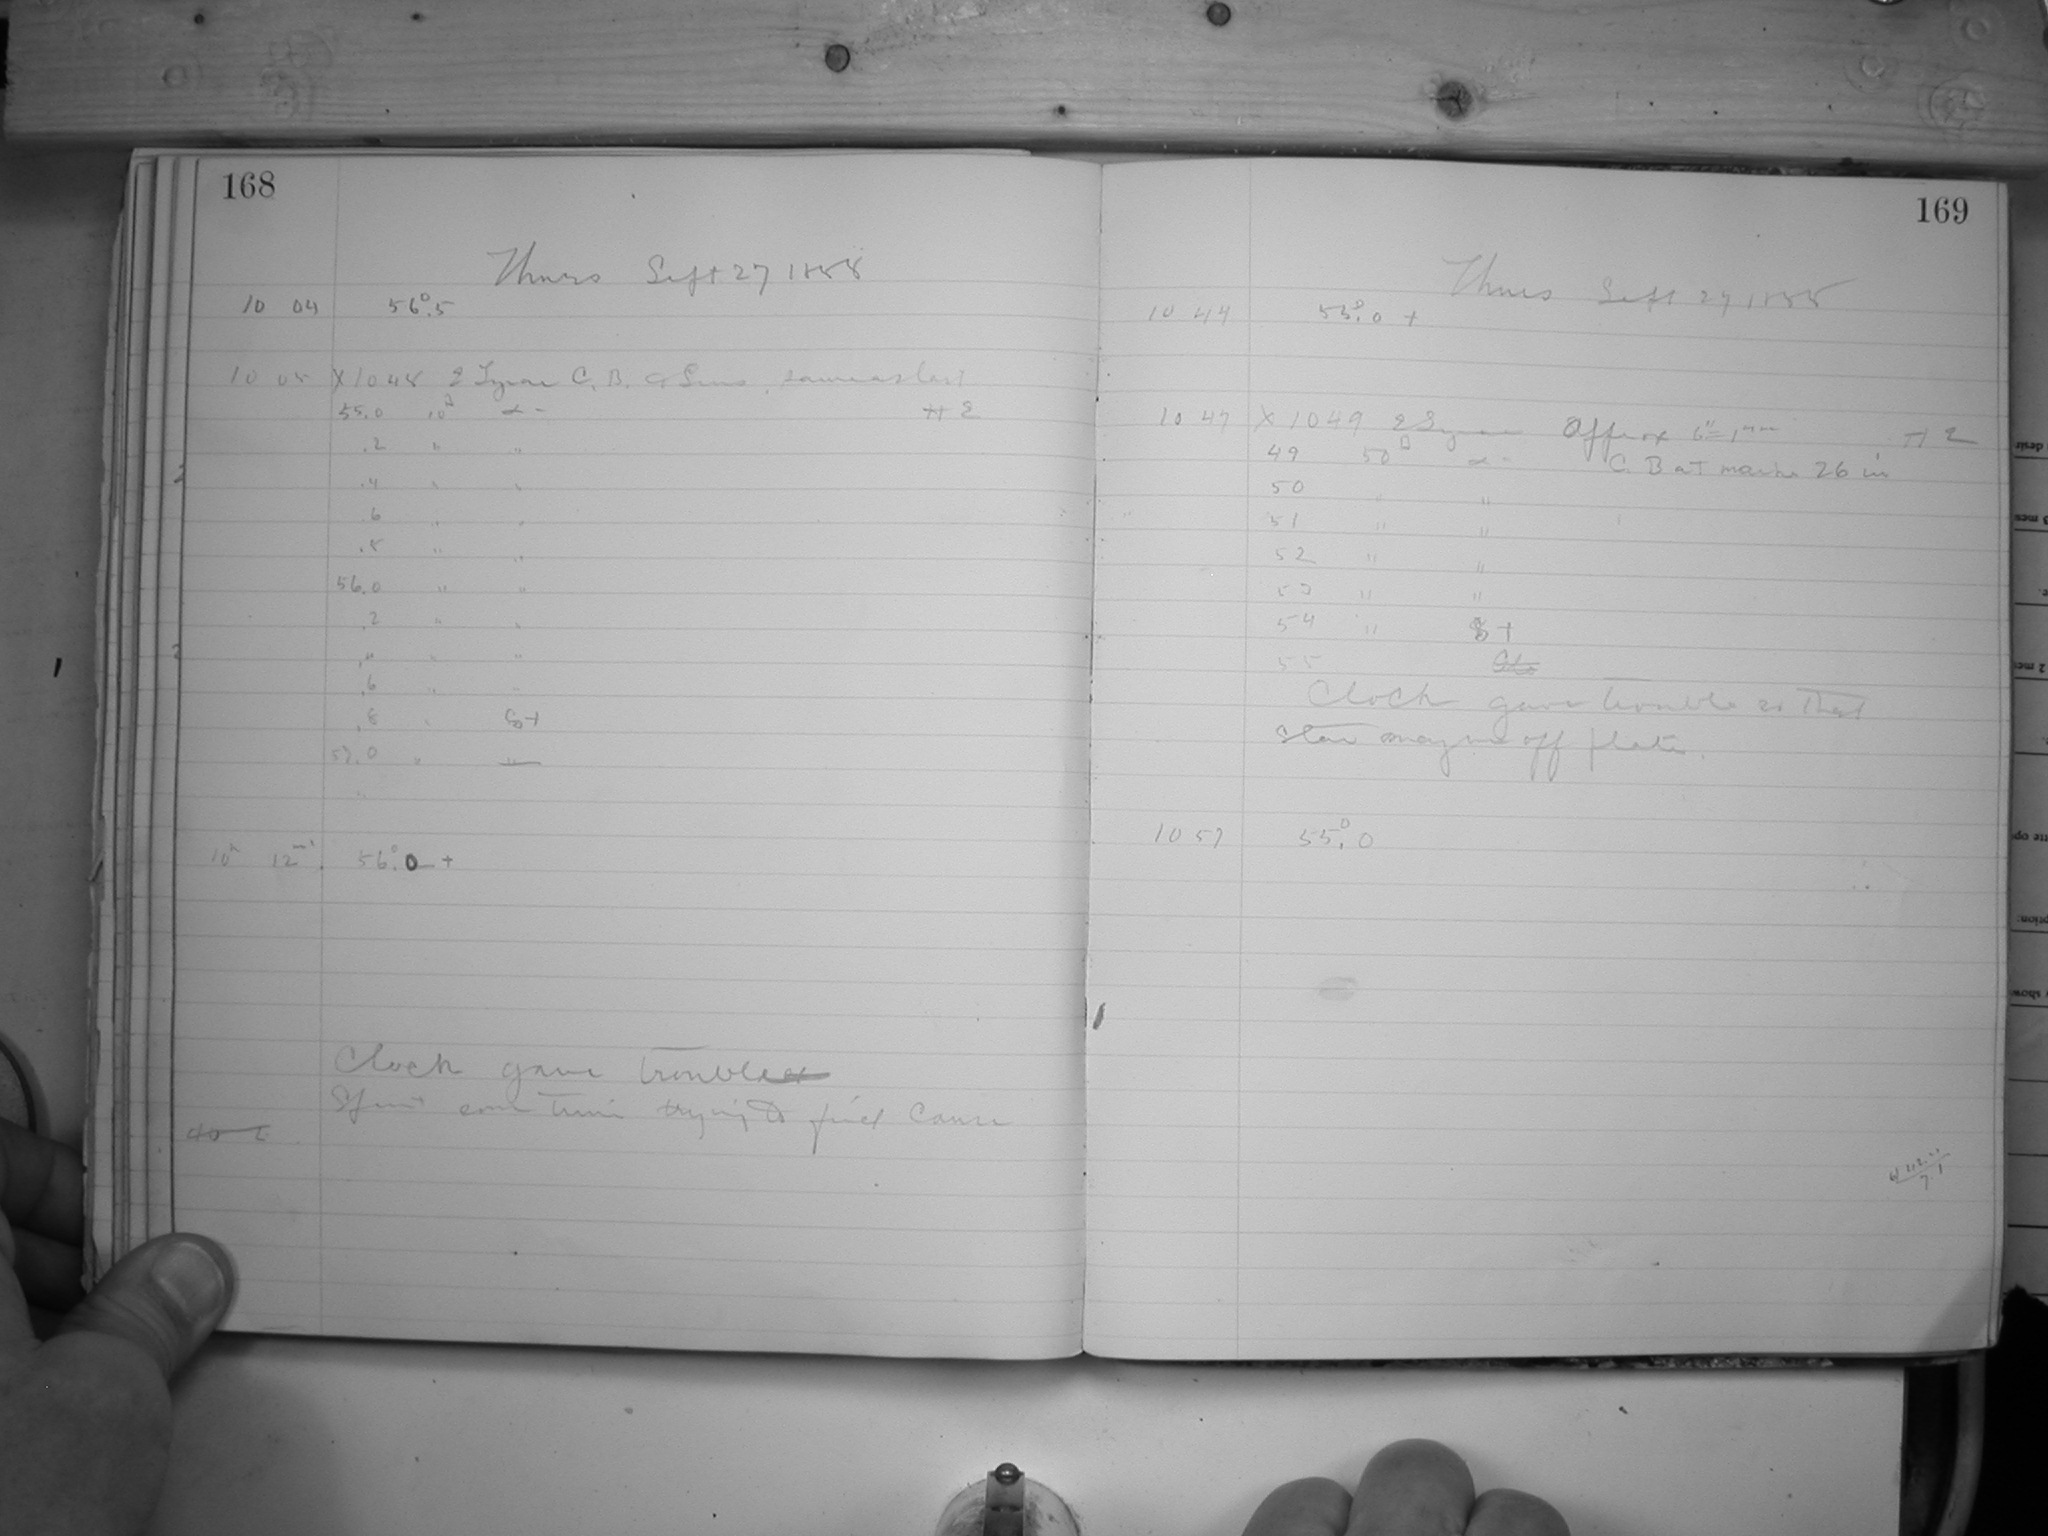 168
Thurs Sept 27 1888
10 04 56°.5
10 05 X1048 2 Lyrae C. B. & Lens, same as last
55.0 10s α - H E
.2 " "
.4 " "
.6 " "
.8 " "
56.0 " "
.2 " "
.4 " "
.6 " "
.8 " +
57.0 " "
10h 12m 56°.0 +
Clock gave trouble
Spent some time trying to find cause
169
Thurs Sept 27 1888
10 44 55°.0 +
10 47 X 1049 2 Lyrae Approx 6"=1mm H E
49 50s α - C. B at mark 26 in
50 " "
51 " "
52 " "
53 " "
54 " +
55
Clock gave trouble so that
star may be off plate.
10 57 55°.0